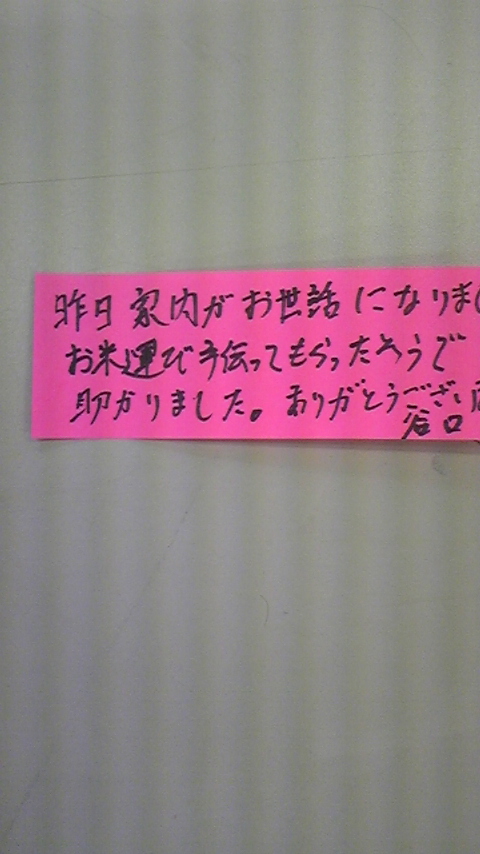 昨日 家内がお世話になりまし
お米運び手伝ってもらったそうで
助かりました。ありがとうござい
谷口